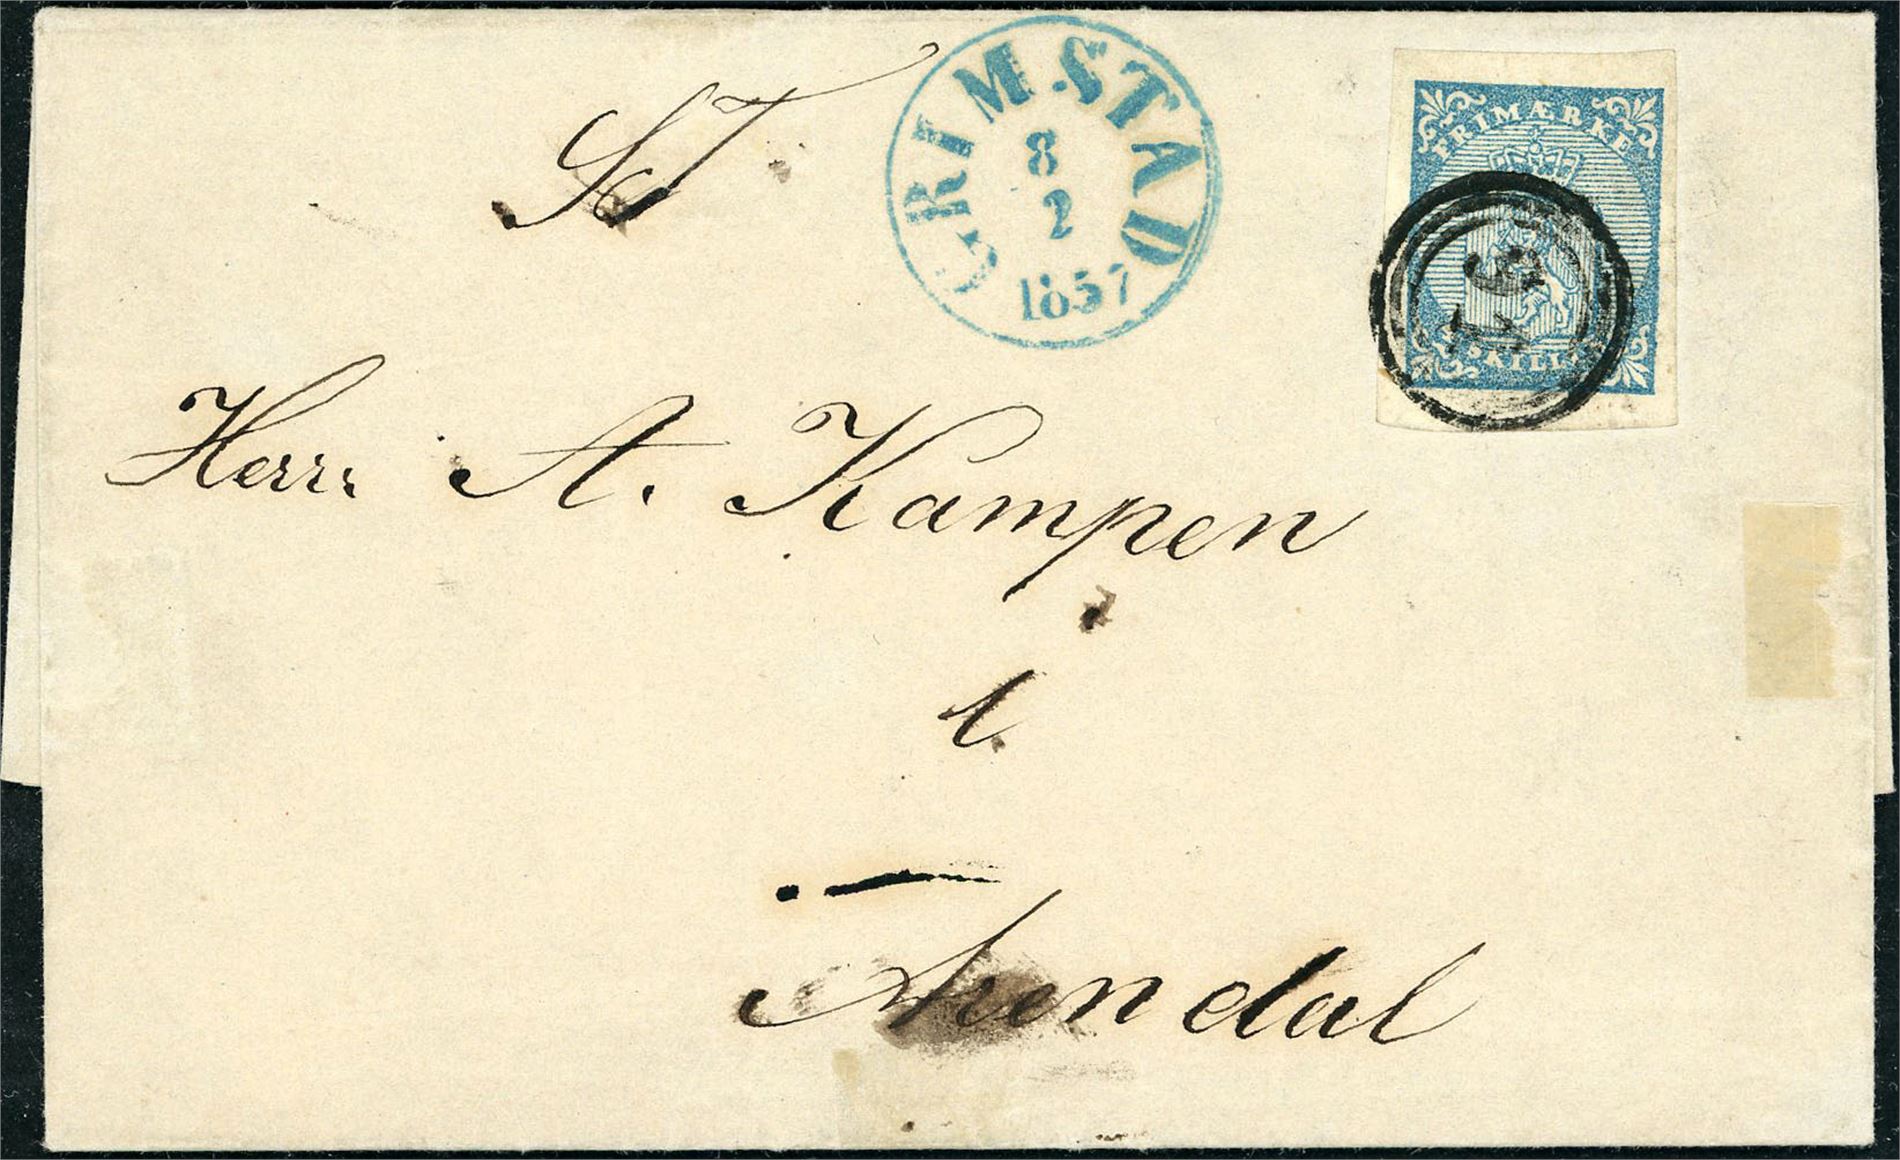 ST
GRIMSTAD
8
2
1857
FRIMÆRKE
SKILL
Herr A. Kampen
i
Arendal